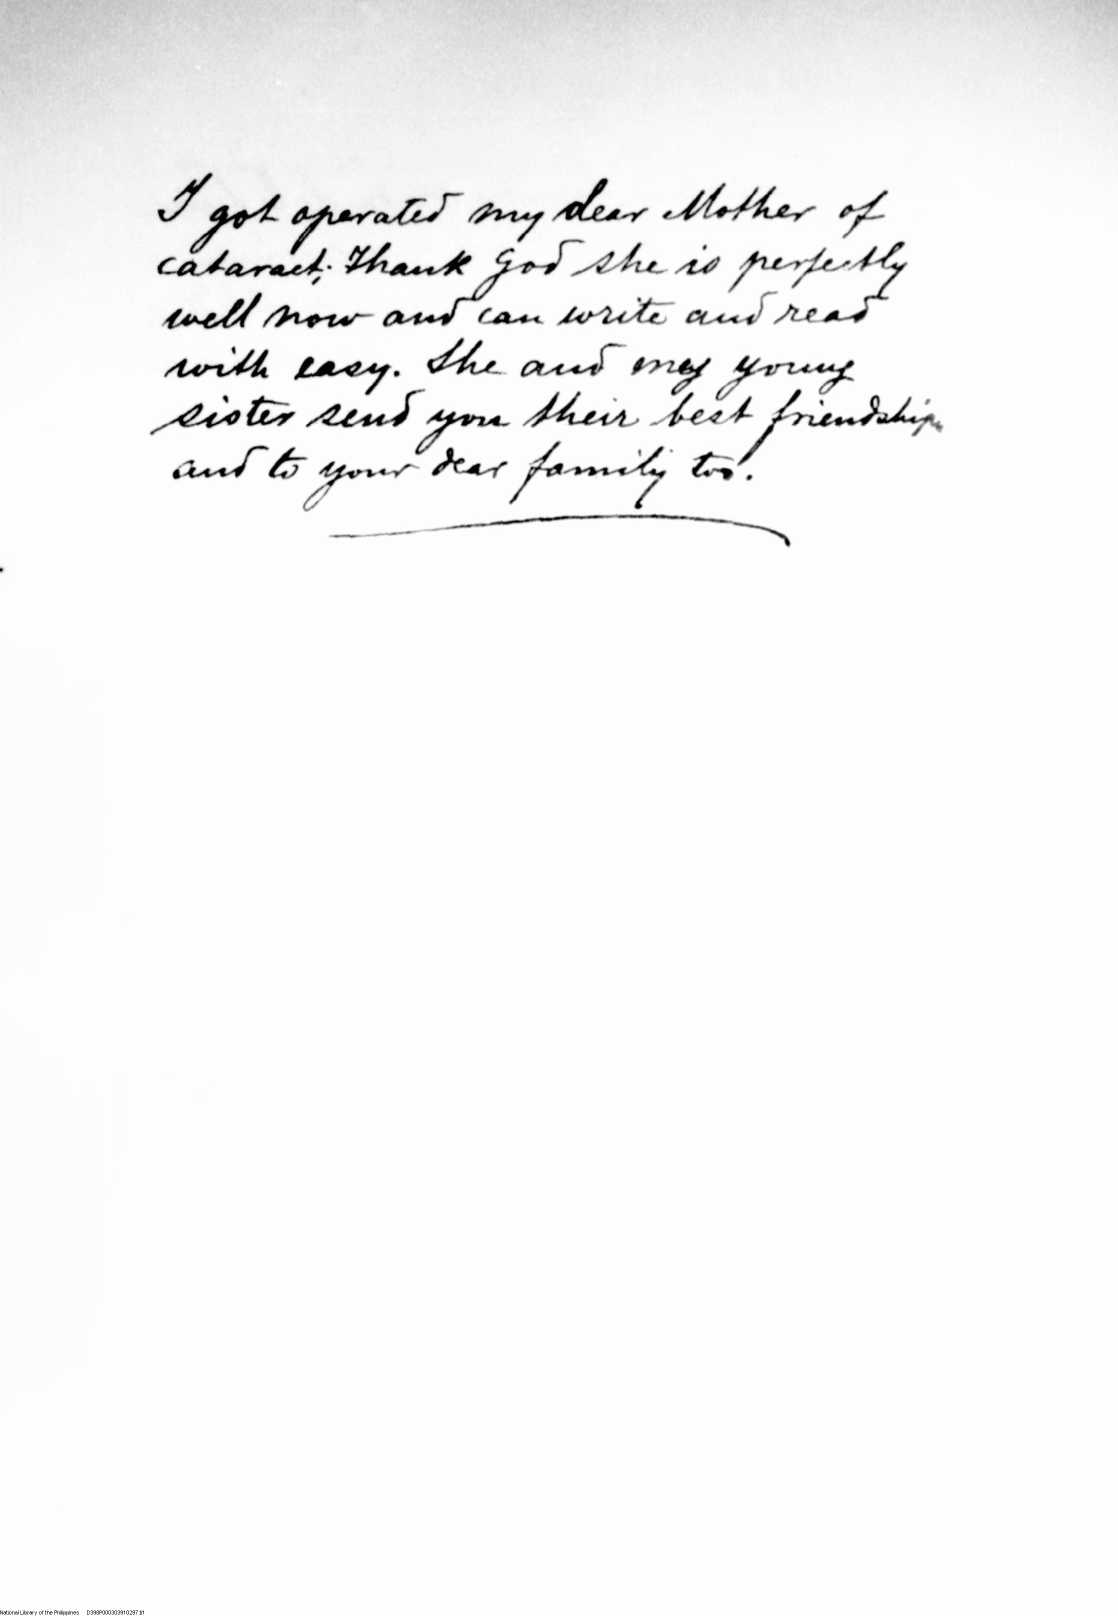 I got operated my dear Mother of
cataract; Thank God she is perfectly
well now and can write and read
with easy. She and my young
sister send you their best friendship
and to your dear family too.
National Library of the Philippines